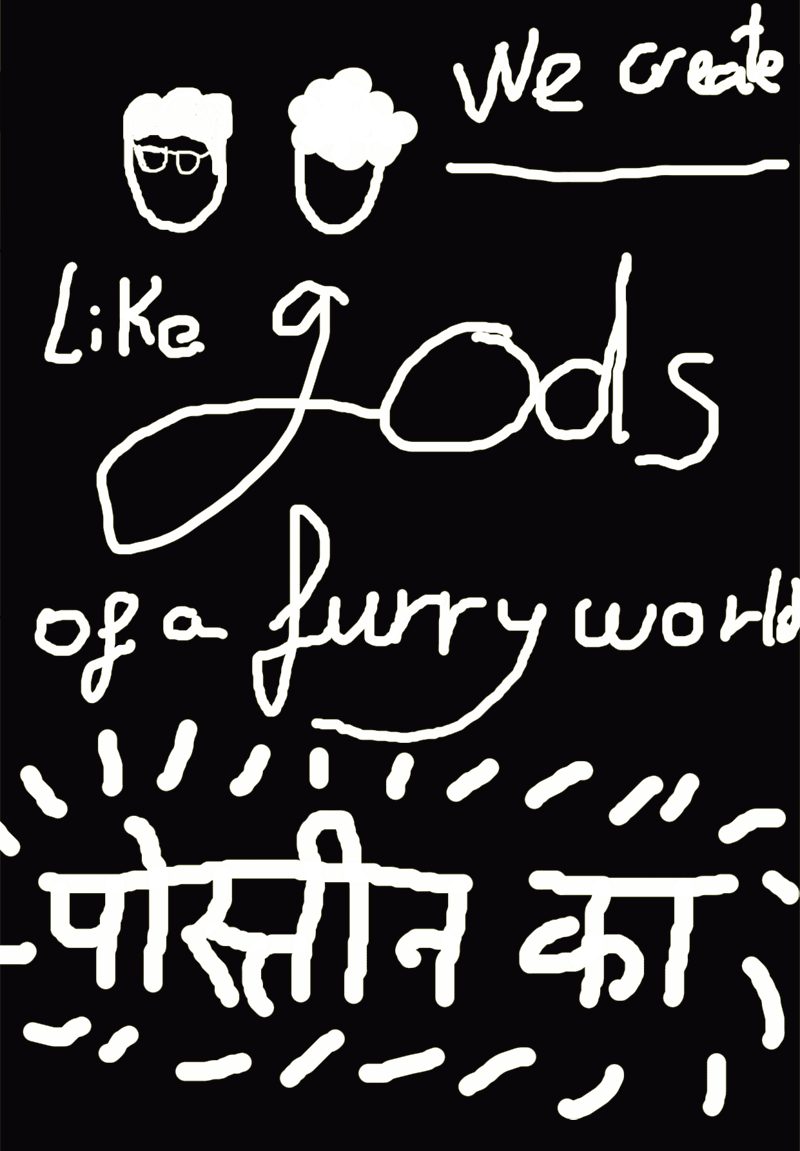 We create
Like gods
of a furry world
पोस्तीन का